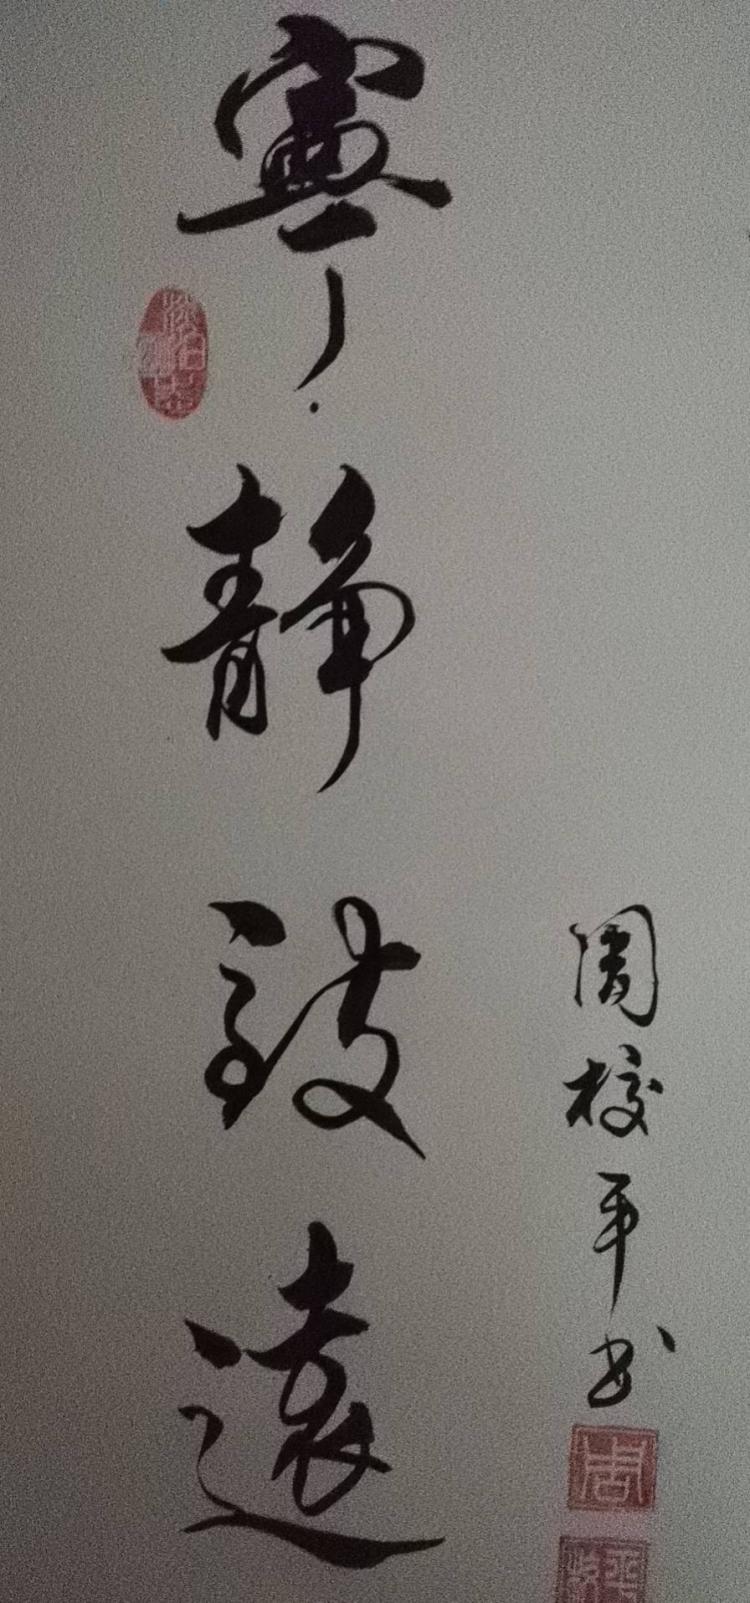 寧靜致遠
周校平书
周